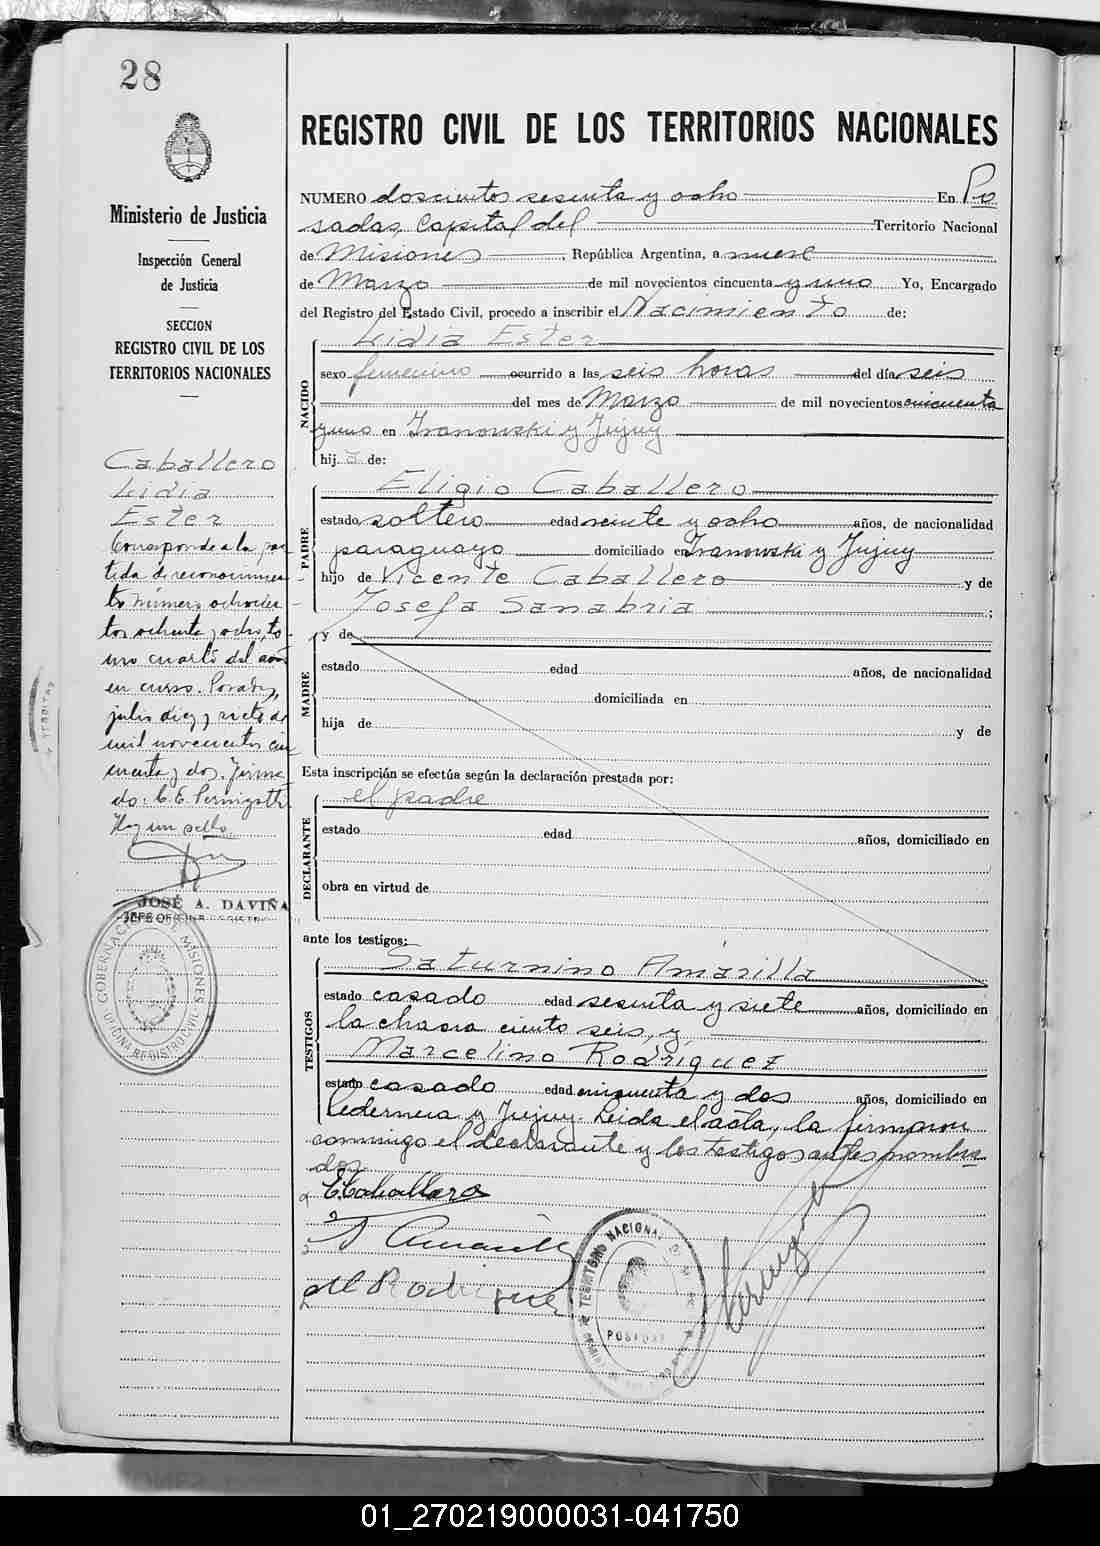 28
Ministerio de Justicia
Inspección General
de Justicia
SECCION
REGISTRO CIVIL DE LOS
TERRITORIOS NACIONALES
Caballero
Lidia
Ester
Corresponde a la par
tida de reconocimien
to número ochocien
tos ochenta y ocho, to
mo cuarto del año
en curso. Posadas,
julio diez y siete de
mil novecientos cin
cuenta y dos. Firma
do: C. E. Pernigotti
Hay un sello.
JOSÉ A. DAVIÑA
JEFE OFICINA REGISTRO
GOBERNACION DE MISIONES
OFICINA REGISTRO CIVIL
REGISTRO CIVIL DE LOS TERRITORIOS NACIONALES
NUMERO doscientos sesenta y ocho En Po
sadas, Capital del Territorio Nacional
de Misiones, República Argentina, a nueve
de Marzo de mil novecientos cincuenta y uno Yo, Encargado
del Registro del Estado Civil, procedo a inscribir el Nacimiento de:
NACIDO
Lidia Ester
sexo femenino ocurrido a las seis horas del día seis
del mes de Marzo de mil novecientos cincuenta
y uno en Ivanowski y Jujuy
hija de:
PADRE
Eligio Caballero
estado soltero edad veinte y ocho años, de nacionalidad
paraguayo domiciliado en Ivanowski y Jujuy
hijo de Vicente Caballero y de
Josefa Sanabria ;
MADRE
y de
estado edad años, de nacionalidad
domiciliada en
hija de y de
Esta inscripción se efectúa según la declaración prestada por:
DECLARANTE
el padre
estado edad años, domiciliado en
obra en virtud de
ante los testigos:
TESTIGOS
Saturnino Amarilla
estado casado edad sesenta y siete años, domiciliado en
la chacra ciento seis, y
Marcelino Rodriguez
estado casado edad cincuenta y dos años, domiciliado en
Ledernera y Jujuy. Leida el acta, la firmaron
conmigo el declarante y los testigos antes nombra
dos
E Caballero
S Amarilla
M Rodriguez
TERRITORIO NACIONAL DE
POSADAS
01_270219000031-041750